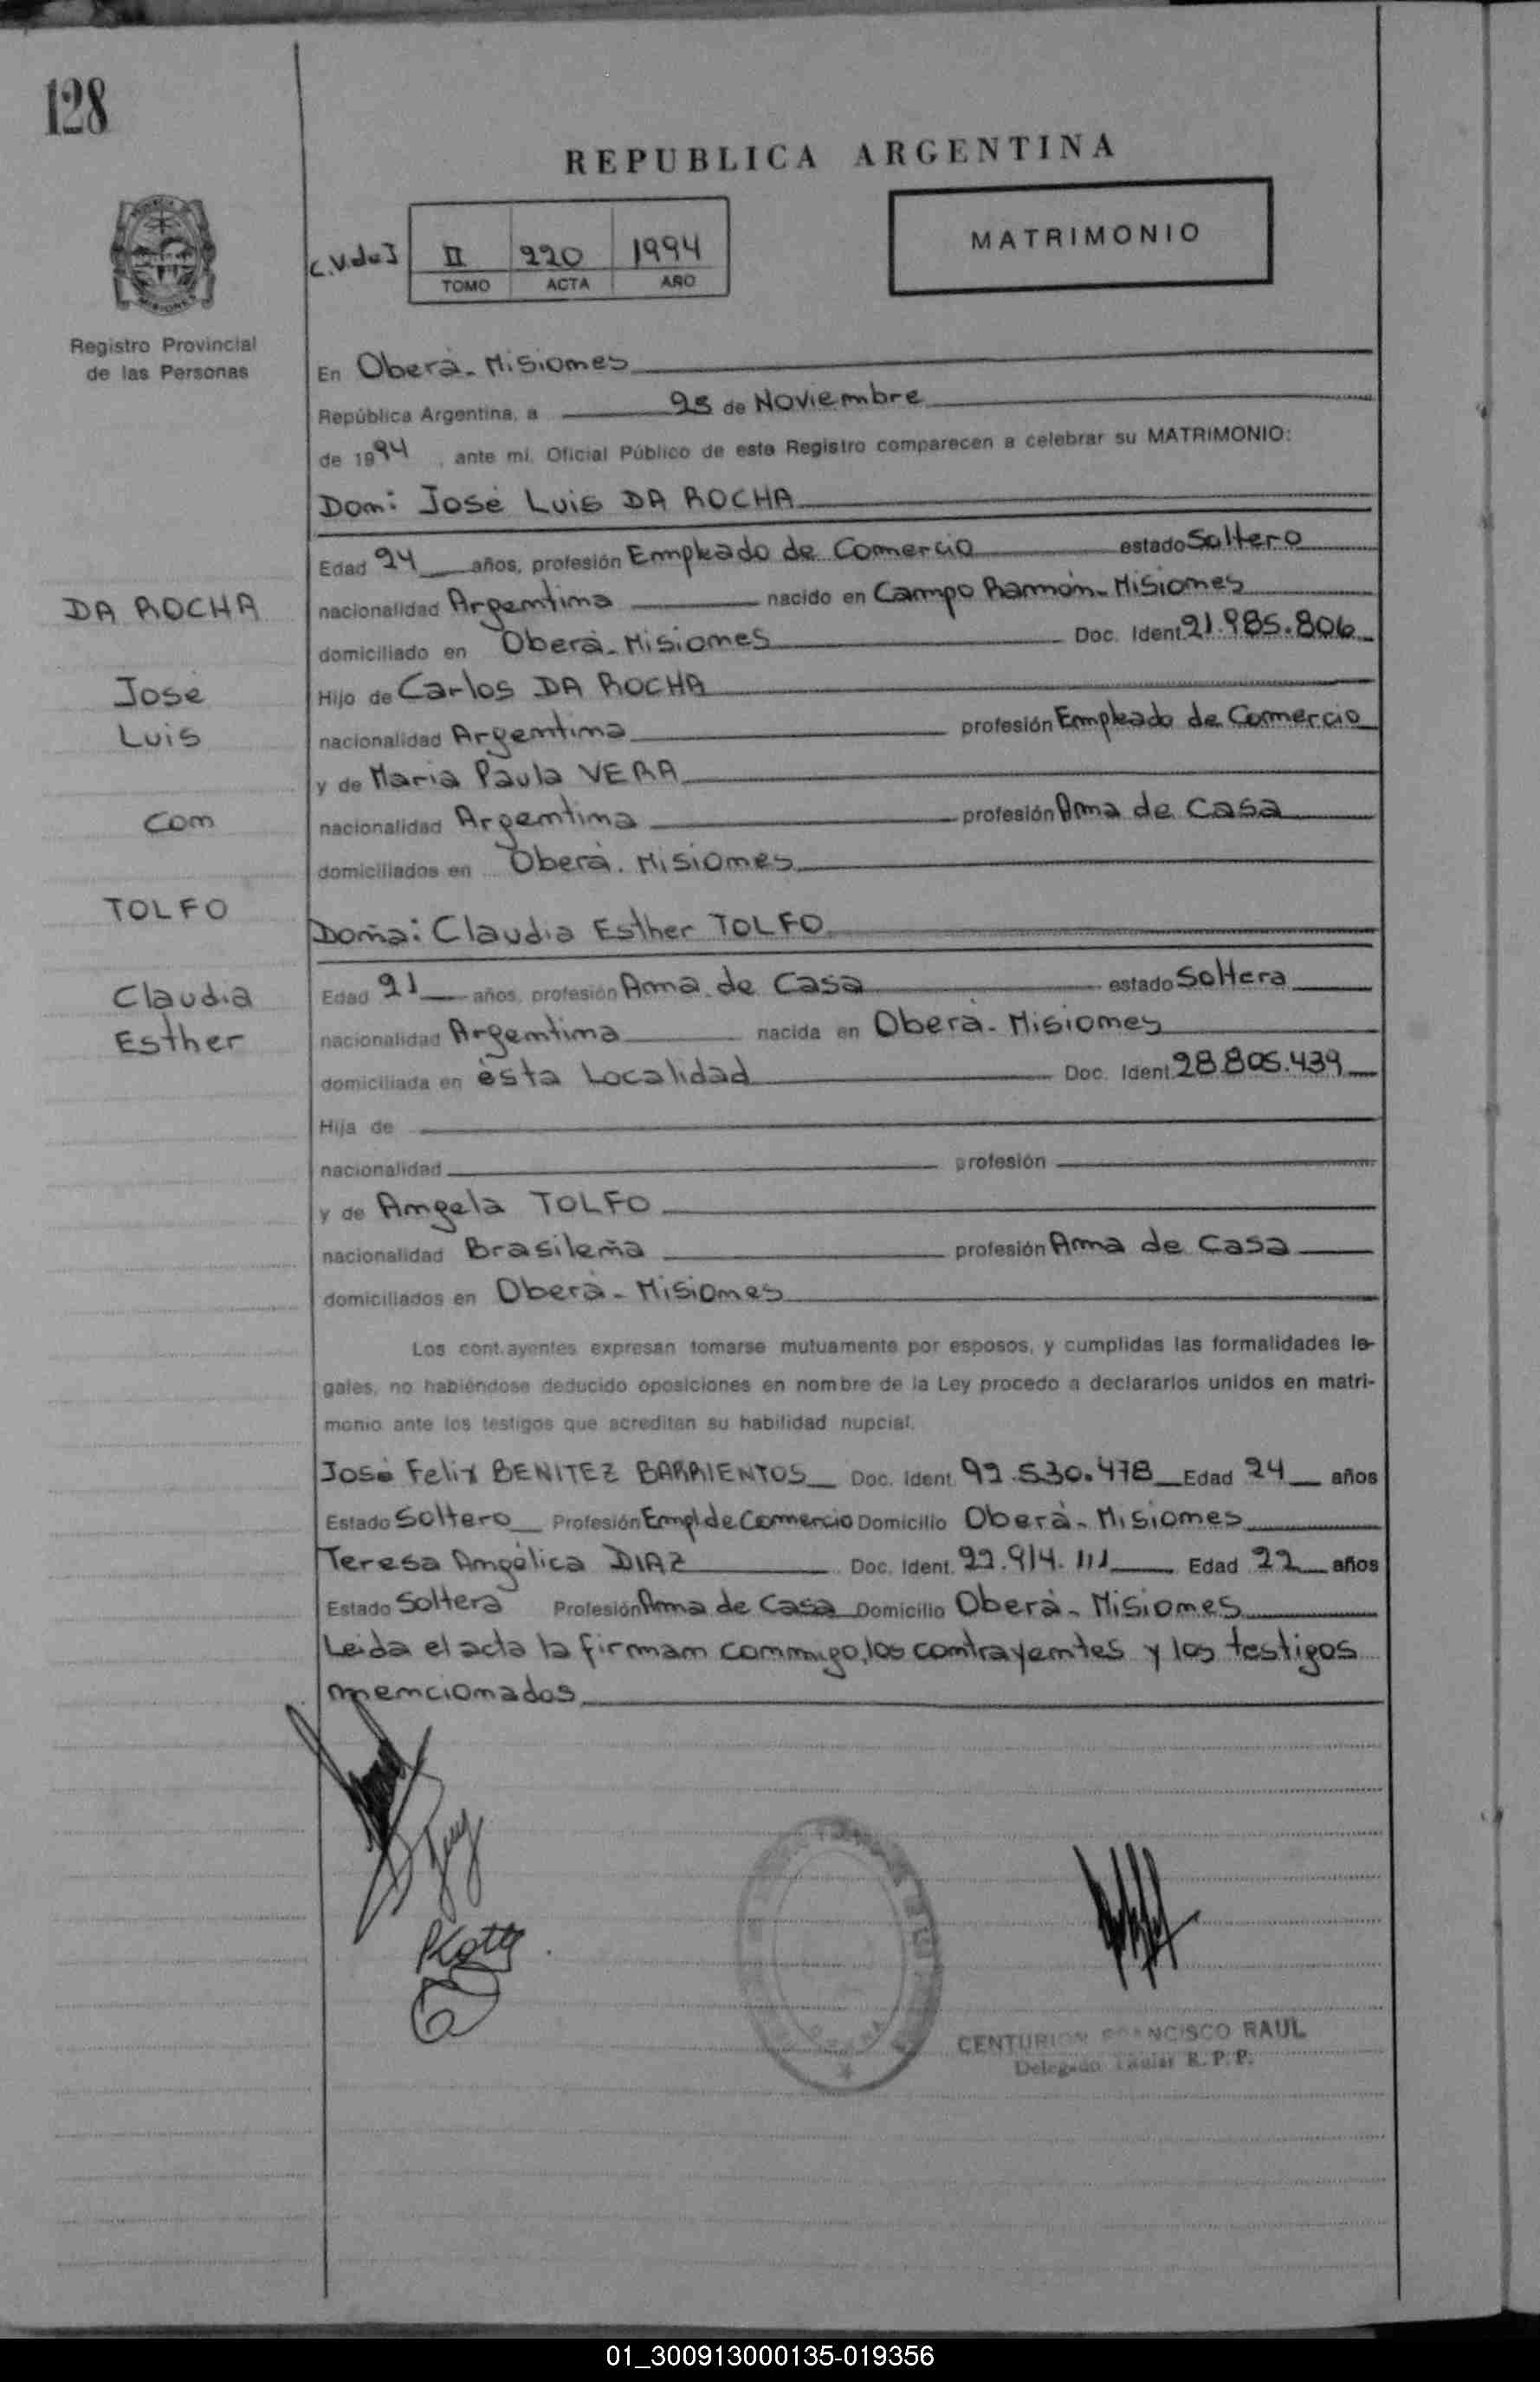 128
REPUBLICA ARGENTINA
C.V.deJ II 220 1994
TOMO ACTA AÑO
MATRIMONIO
Registro Provincial
de las Personas
En Oberá - Misiones
República Argentina, a 25 de Noviembre
de 1994, ante mí, Oficial Público de este Registro comparecen a celebrar su MATRIMONIO:
Don: José Luis DA ROCHA
Edad 24 años, profesión Empleado de Comercio estado Soltero
DA ROCHA
nacionalidad Argentina nacido en Campo Ramón - Misiones
domiciliado en Oberá - Misiones Doc. Ident. 21.985.806
José
Hijo de Carlos DA ROCHA
Luis
nacionalidad Argentina profesión Empleado de Comercio
y de Maria Paula VERA
con
nacionalidad Argentina profesión Ama de Casa
domiciliados en Oberá. Misiones
TOLFO
Doña: Claudia Esther TOLFO
Claudia
Edad 21 años, profesión Ama de Casa estado Soltera
Esther
nacionalidad Argentina nacida en Oberá - Misiones
domiciliada en ésta Localidad Doc. Ident. 28.805.439
Hija de
nacionalidad profesión
y de Angela TOLFO
nacionalidad Brasileña profesión Ama de Casa
domiciliados en Oberá - Misiones
Los contrayentes expresan tomarse mutuamente por esposos, y cumplidas las formalidades le-
gales, no habiéndose deducido oposiciones en nombre de la Ley procedo a declararlos unidos en matri-
monio ante los testigos que acreditan su habilidad nupcial.
José Felix BENITEZ BARRIENTOS Doc. Ident. 92.530.478 Edad 24 años
Estado Soltero Profesión Empl de Comercio Domicilio Oberá - Misiones
Teresa Angélica DIAZ Doc. Ident. 22.914.111 Edad 22 años
Estado Soltera Profesión Ama de Casa Domicilio Oberá - Misiones
Leida el acta la firman conmigo, los contrayentes y los testigos
mencionados
CENTURION FRANCISCO RAUL
Delegado Titular R. P. P.
01_300913000135-019356